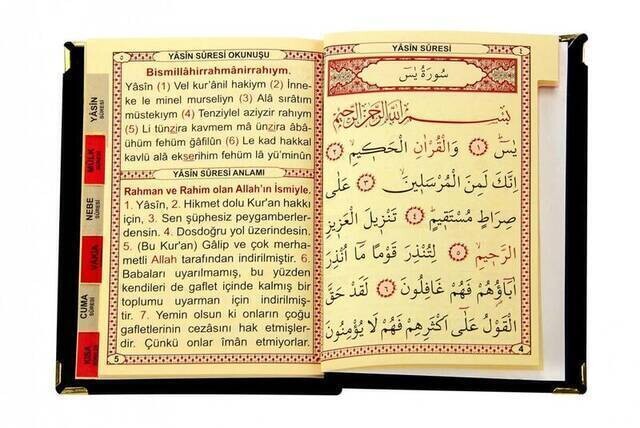 YÂSİN SÛRESİ OKUNUŞU
٥
Bismillâhirrahmânirrahıym.
Yâsîn (1) Vel kur'ânil hakiym (2) İnne-
ke le minel murseliyn (3) Alâ sırâtım
müstekıym (4) Tenziylel aziyzir rahıym
(5) Li tünzira kavmem mâ ünzira âbâ-
ühüm fehüm gâfilûn (6) Le kad hakkal
kavlü alâ ekserihim fehüm lâ yü'minûn
YÂSİN SÛRESİ ANLAMI
Rahman ve Rahim olan Allah'ın İsmiyle.
1. Yâsîn, 2. Hikmet dolu Kur'an hakkı
için, 3. Sen şüphesiz peygamberler-
densin. 4. Dosdoğru yol üzerindesin.
5. (Bu Kur'an) Gâlip ve çok merha-
metli Allah tarafından indirilmiştir. 6.
Babaları uyarılmamış, bu yüzden
kendileri de gaflet içinde kalmış bir
toplumu uyarman için indirilmiş-
tir. 7. Yemin olsun ki onların çoğu
gafletlerinin cezâsını hak etmişler-
dir. Çünkü onlar îmân etmiyorlar.
5
YÂSİN
SÛRESİ
MÜLK
SÛRESİ
NEBE
SÛRESİ
VAKIA
SÛRESİ
CUMA
SÛRESİ
KISA
YÂSİN SÛRESİ
٤
سُورَةُ يٰسٓ
بِسْمِ اللّٰهِ الرَّحْمٰنِ الرَّحِيمِ
يٰسٓ ﴿١﴾ وَالْقُرْاٰنِ الْحَكِيمِ ﴿٢﴾
اِنَّكَ لَمِنَ الْمُرْسَلِينَ ﴿٣﴾ عَلٰى
صِرَاطٍ مُسْتَقِيمٍ ﴿٤﴾ تَنْزِيلَ الْعَزِيزِ
الرَّحِيمِ ﴿٥﴾ لِتُنْذِرَ قَوْمًا مَٓا اُنْذِرَ
اٰبَٓاؤُ۬هُمْ فَهُمْ غَافِلُونَ ﴿٦﴾ لَقَدْ حَقَّ
الْقَوْلُ عَلٰٓى اَكْثَرِهِمْ فَهُمْ لَا يُؤْمِنُونَ
4